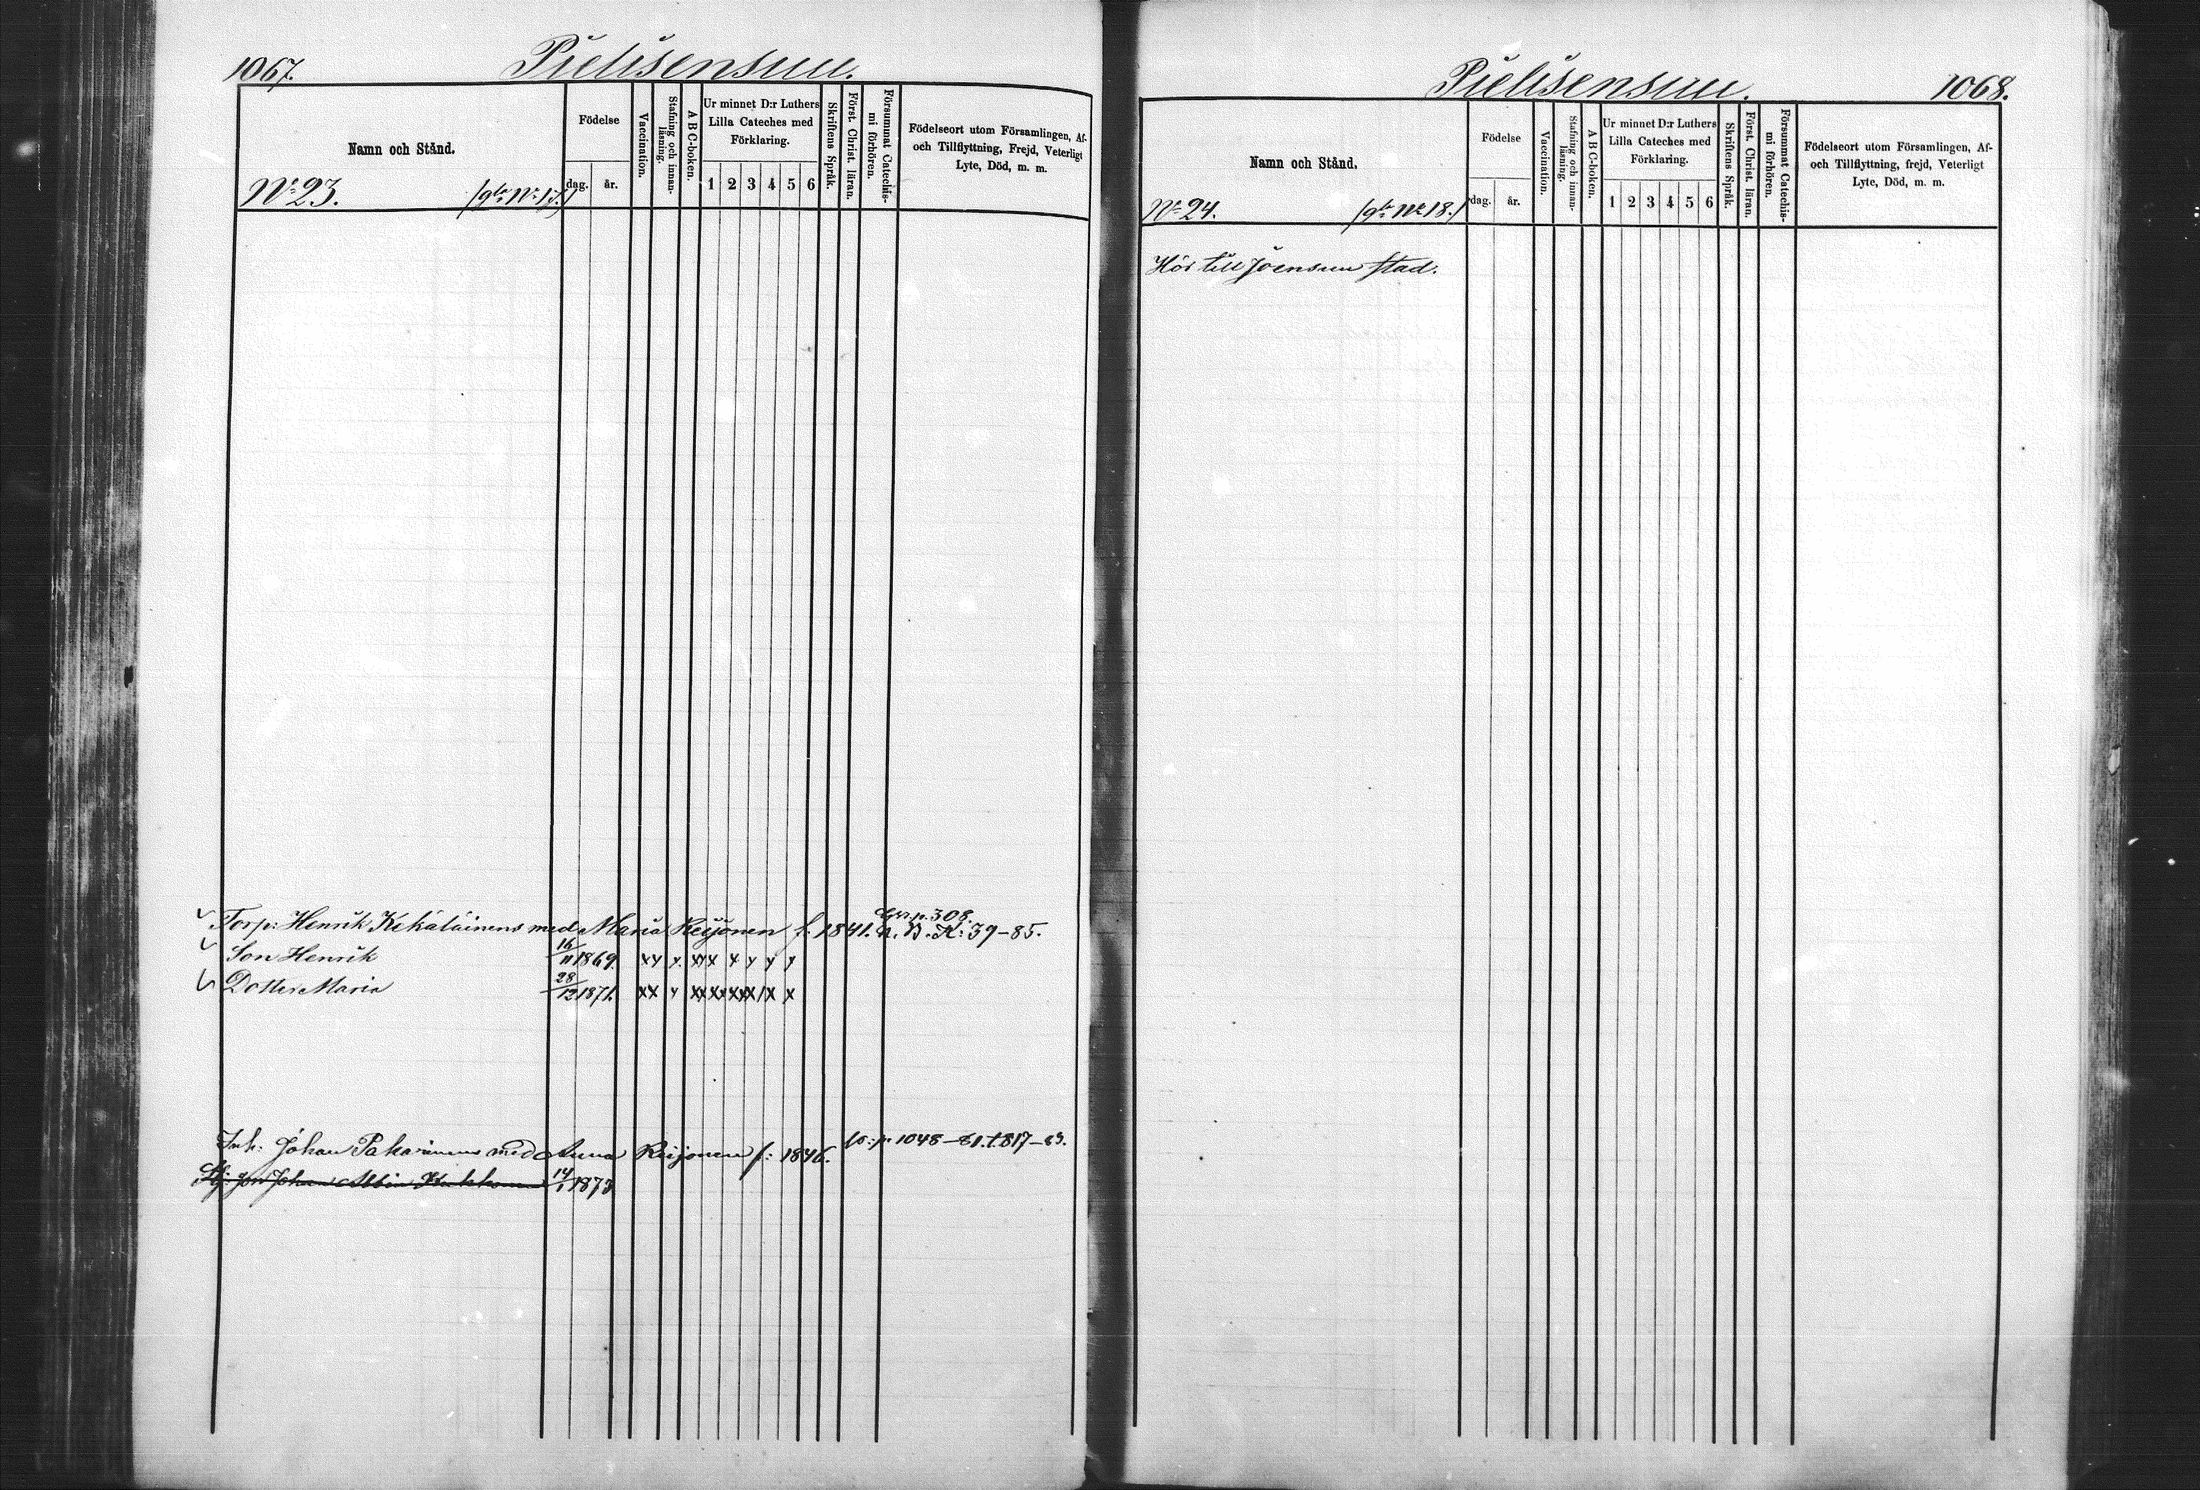 1067.
Pielisensuu.
Namn och Stånd.
Födelse
dag.
år.
Vaccination.
Stafning och innanläsning.
ABC-boken.
Ur minnet D:r Luthers
Lilla Cateches med
Förklaring.
1 2 3 4 5 6
Skriftens Språk.
Först. Christ. läran.
Försummat Catechismi förhören.
Födelseort utom Församlingen, Af-
och Tillflyttning, Frejd, Veterligt
Lyte, Död, m. m.
No 23.
Torp: Henrik Kekäläinens med Maria Reijonen f. 1841. N. B. K: 39-85.
Son Henrik 16/11 1869. xy y. xyx x y y y
Dotter Maria 28/12 1871. xx y xxxxxxx/x x
Inh: Johan Pakarinens med Anna Reijonen f: 1846.
Son Johan Albin 14/1 1873
Pielisensuu.
1068.
Namn och Stånd.
Födelse
dag.
år.
Vaccination.
Stafning och innanläsning.
ABC-boken.
Ur minnet D:r Luthers
Lilla Cateches med
Förklaring.
1 2 3 4 5 6
Skriftens Språk.
Först. Christ. läran.
Försummat Catechismi förhören.
Födelseort utom Församlingen, Af-
och Tillflyttning, frejd, Veterligt
Lyte, Död, m. m.
No 24. /gla No 18./
Hör till Joensuu stad.